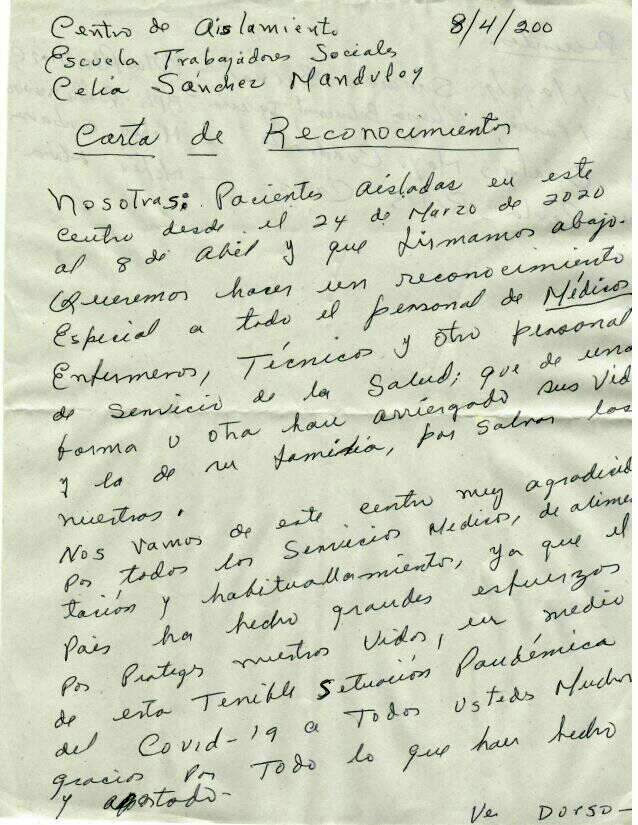 Centro de Aislamiento 8/4/200
Escuela Trabajadores Sociales
Celia Sánchez Manduley
Carta de Reconocimientos
Nosotras: Pacientes Aisladas en este
centro desde el 24 de Marzo de 2020
al 8 de Abil y que firmamos abajo.
Queremos hacer un reconocimiento
Especial a todo el personal de Médicos
Enfermeros, Técnicos y otro personal
de Servicio de la Salud; que de una
forma u otra han arriergado sus Vid
y la de su familia, por Salvar las
nuestras.
Nos Vamos de este centro muy agradecid
por todos los Servicios Medicos, de alimen
tación y habituallamiento, ya que el
Pais ha hecho grandes esfuerzos
por Proteger nuestros Vidas, en medio
de esta Terrible Situación Pandémica
del Covid-19 a Todos Ustedes Muchas
gracias por Todo lo que han hecho
y aportado-
Ver Dorso-